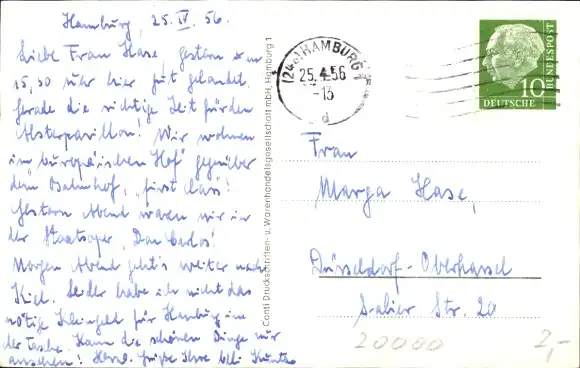 Hamburg, 25. IV. 56.
Liebe Frau Hase, gestern um
15,30 Uhr hier gut gelandet.
Gerade die richtige Zeit für den
Alsterpavillon! Wir wohnen
im "Europäischen Hof" gegenüber
dem Bahnhof, "first class"!
Gestern Abend waren wir in
der Staatsoper, "Don Carlos"!
Morgen Abend geht's weiter nach
Kiel. Leider habe ich nicht das
nötige Kleingeld für Hamburg in
der Tasche. Kann die schönen Dinge nur
anschauen! Herzl. Grüße Ihre
Conti Druckschriften- u. Warenhandelsgesellschaft mbH, Hamburg 1
(24a) HAMBURG
25.4.56
-13
d
10
DEUTSCHE
BUNDESPOST
Frau
Marga Hase,
Düsseldorf-Oberkassel
Salier Str. 20
20000
2,-